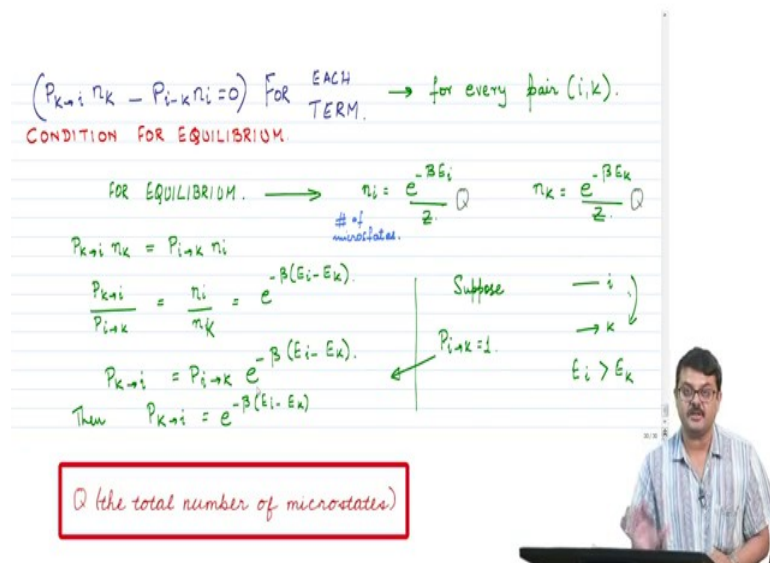 (P_{K→i} n_K − P_{i-K} n_i = 0) FOR EACH TERM. → for every pair (i,K).
CONDITION FOR EQUILIBRIUM.
FOR EQUILIBRIUM. → n_i = e^{-βE_i}/Z. Q n_K = e^{-βE_K}/Z. Q
# of microstates.
P_{K→i} n_K = P_{i→K} n_i
P_{K→i}/P_{i→K} = n_i/n_K = e^{-β(E_i-E_K)}.
Suppose — i
→ K
P_{i→K} = 1.
E_i > E_K
P_{K→i} = P_{i→K} e^{-β(E_i-E_K)}.
Then P_{K→i} = e^{-β(E_i-E_K)}
Q (the total number of microstates)